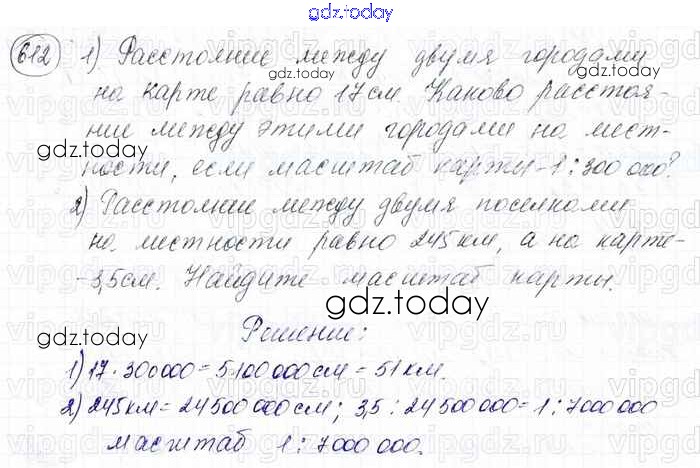 gdz.today
612 1) Расстояние между двумя городами
gdz.today
на карте равно 17 см. Каково расстоя-
ние между этими городами на мест-
gdz.today
ности, если масштаб карты - 1 : 300 000?
2) Расстояние между двумя поселками
на местности равно 245 км, а на карте -
- 3,5 см. Найдите масштаб карты.
gdz.today
Решение:
1) 17 · 300000 = 5100000 см = 51 км.
2) 245 км = 24500000 см; 3,5 : 24500000 = 1 : 7000000
масштаб 1 : 7000000.
gdz.today